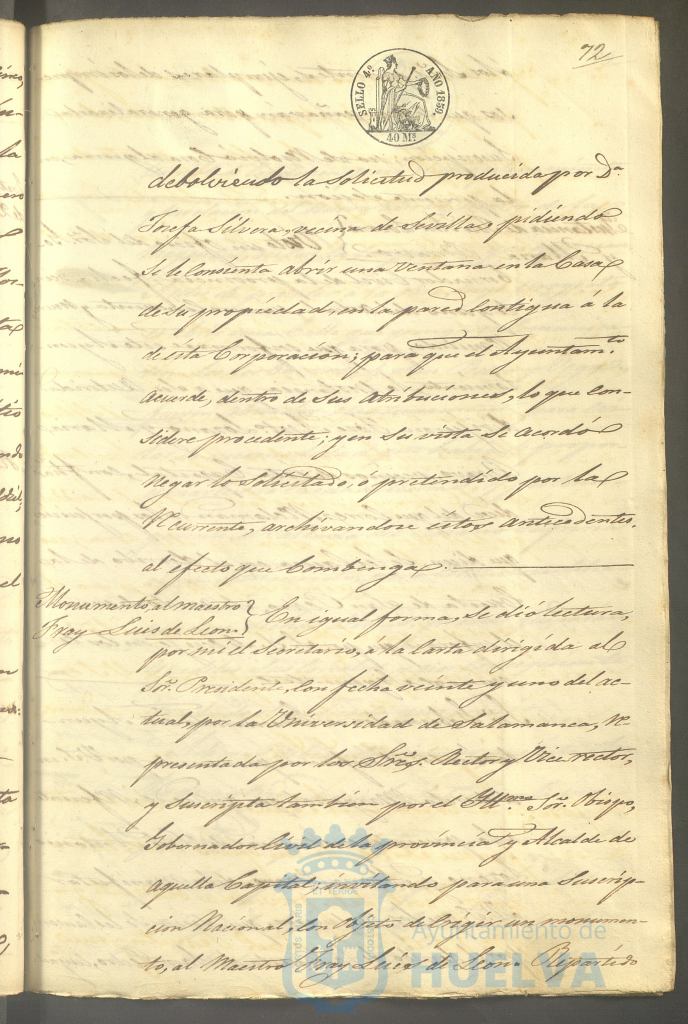 72
SELLO 4º AÑO 1859.
40 Ms
debolviendo la solicitud producida por Dª
Josefa Silvera, vecina de Sevilla, pidiendo
se le consienta abrir una ventana en la Casa
de su propiedad, en la pared contigua á la
de esta Corporacion; para que el Ayuntamto
acuerde, dentro de sus atribuciones, lo que con-
sidere procedente; y en su vista se acordó
negar lo solicitado, ó pretendido por la
recurrente, archivandose estos antecedentes,
al efecto que combenga.
Monumento, al maestro
Fray Luis de Leon.
En igual forma, se dió lectura,
por mi el Secretario, á la Carta dirigida al
Sor. Presidente, con fecha veinte y uno del ac-
tual, por la Universidad de Salamanca, re
presentada por los Sres. Rector y Vice rector,
y suscripta tambien por el Illmo Sor. Obispo,
Gobernador Civil de la provincia y Alcalde de
aquella Capital, invitando para una Suscrip-
cion Nacional, con objeto de erigir un monumen-
to, al Maestro Fray Luis de Leon. Repartido
Ayuntamiento de
HUELVA